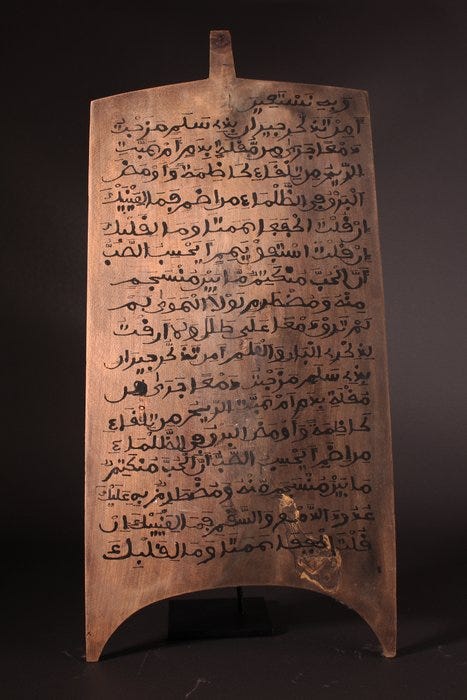 وبه نستعين
أمن تذكر جيران بذي سلم مزجت
دمعا جرى من مقلة بدم أم هبت
الريح من تلقاء كاظمة وأومض
البرق في الظلماء من إضم فما لعينيك
إن قلت اكففا همتا وما لقلبك
إن قلت استفق يهم أيحسب الصب
أن الحب منكتم ما بين منسجم
منه ومضطرم لولا الهوى لم
ترق دمعا على طلل ولا أرقت
لذكر البان والعلم أمن تذكر جيران
بذي سلم مزجت دمعا جرى من
مقلة بدم أم هبت الريح من تلقاء
كاظمة وأومض البرق في الظلماء
من إضم أيحسب الصب أن الحب منكتم
ما بين منسجم منه ومضطرم به عليك
عدول الدمع والسقم فما لعينيك إن
قلت اكففا همتا وما لقلبك